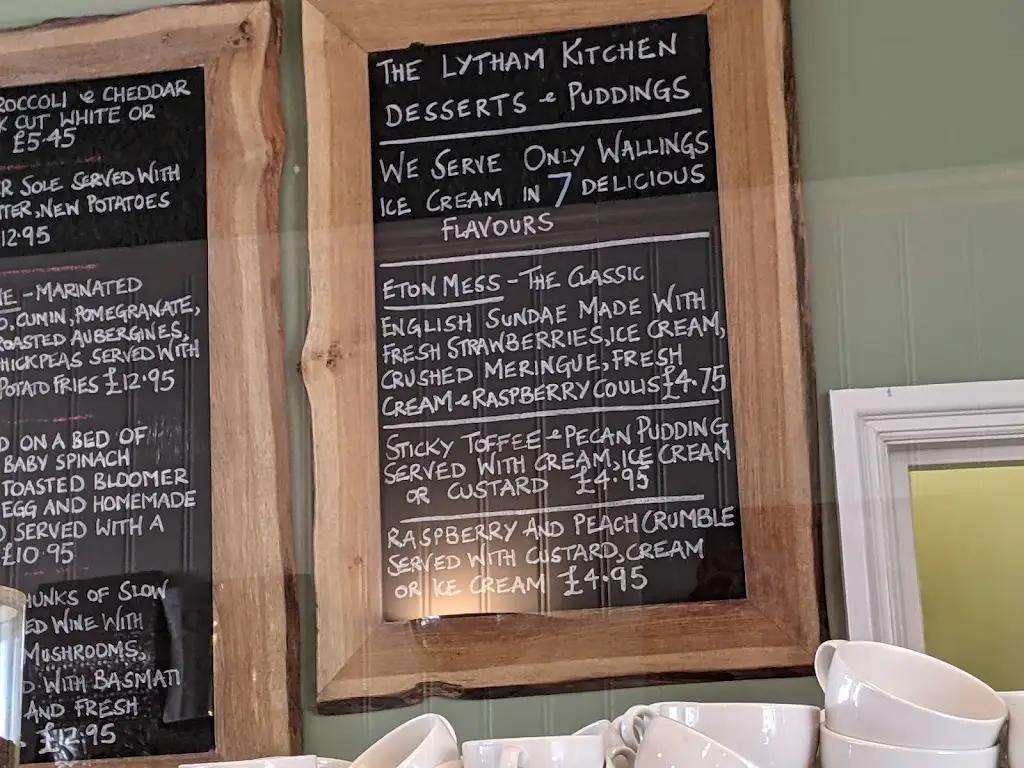 ROCCOLI & CHEDDAR
K CUT WHITE OR
£5.45
R SOLE SERVED WITH
TTER, NEW POTATOES
12.95
NE - MARINATED
O, CUMIN, POMEGRANATE,
ROASTED AUBERGINES,
HICKPEAS SERVED WITH
POTATO FRIES £12.95
D ON A BED OF
BABY SPINACH
TOASTED BLOOMER
EGG AND HOMEMADE
D SERVED WITH A
£10.95
HUNKS OF SLOW
ED WINE WITH
MUSHROOMS,
D WITH BASMATI
AND FRESH
£12.95
THE LYTHAM KITCHEN
DESSERTS & PUDDINGS
WE SERVE ONLY WALLINGS
ICE CREAM IN 7 DELICIOUS
FLAVOURS
ETON MESS - THE CLASSIC
ENGLISH SUNDAE MADE WITH
FRESH STRAWBERRIES, ICE CREAM,
CRUSHED MERINGUE, FRESH
CREAM & RASPBERRY COULIS £4.75
STICKY TOFFEE & PECAN PUDDING
SERVED WITH CREAM, ICE CREAM
OR CUSTARD £4.95
RASPBERRY AND PEACH CRUMBLE
SERVED WITH CUSTARD, CREAM
OR ICE CREAM £4.95